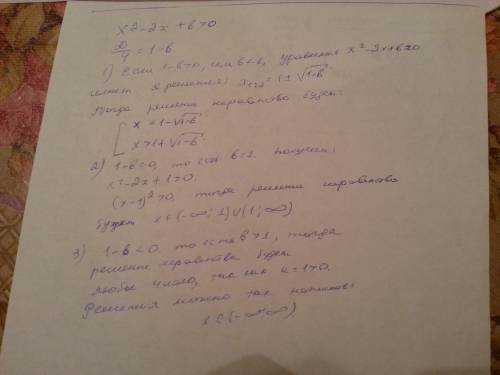 x² - 2x + b > 0
D/4 = 1 - b
1) Если 1-b>0, или b<1, уравнение x² - 2x + b = 0
имеет 2 решения: x₁,₂ = 1 ± √1-b.
Тогда решения неравенства будут:
[ x < 1 - √1-b
x > 1 + √1-b
2) 1-b=0, то есть b=1. получим:
x² - 2x + 1 > 0.
(x-1)² > 0, тогда решения неравенства
будут x ∈ (-∞; 1) ∪ (1; ∞)
3) 1-b < 0, то есть b > 1, тогда
решения неравенства будет
любое число, так как a = 1 > 0.
Решения можно так
x ∈ (-∞; ∞)